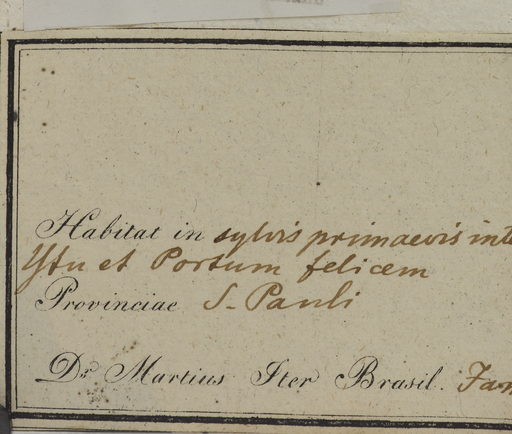 Habitat in sylvis primaevis inte
Ytu et Portum felicem
Provinciae S. Pauli
Dr. Martius Iter Brasil. Jan